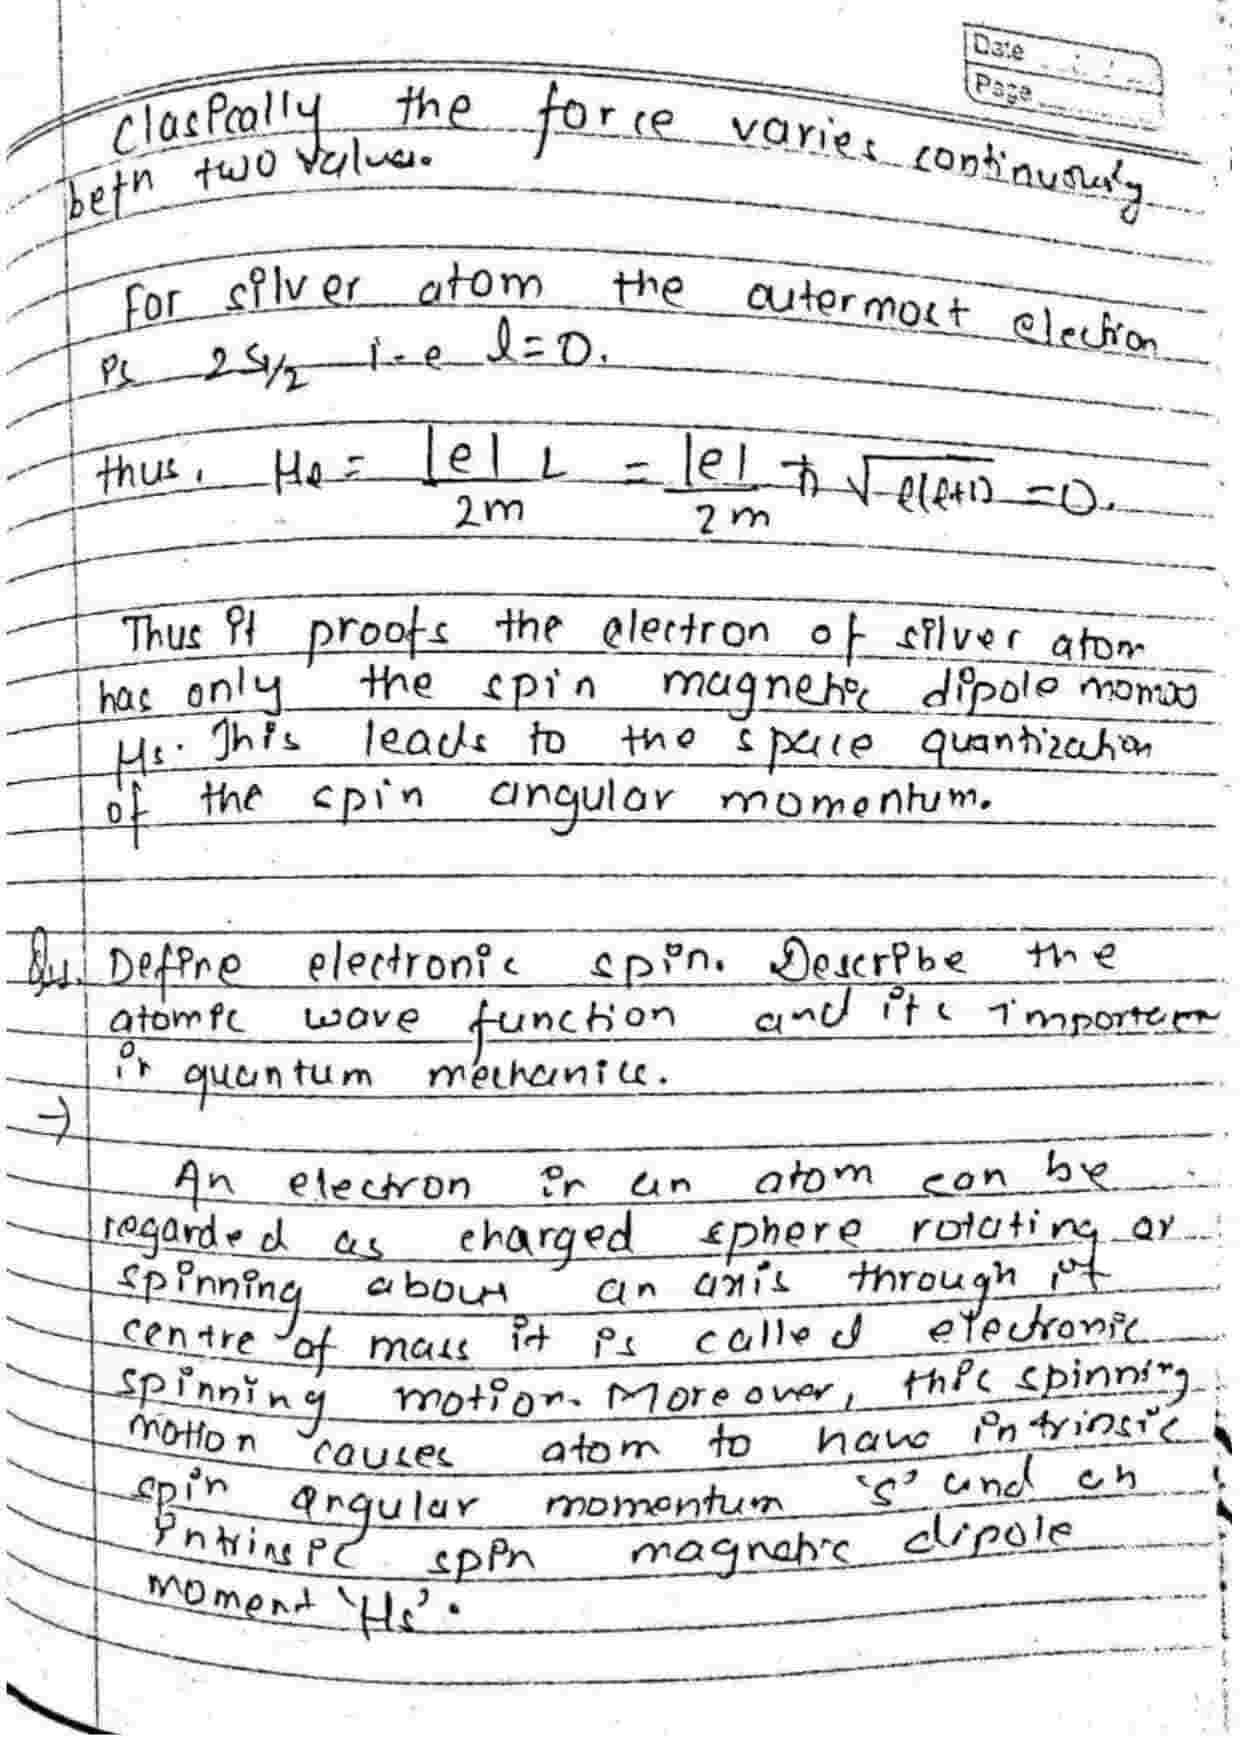 Date
Page
Classically the force varies continuously
betn two values.
For silver atom the outermost electron
is 2S1/2 i.e l=0.
thus, μl = |e| L / 2m = |e| / 2m ħ √l(l+1) = 0.
Thus it proofs the electron of silver atom
has only the spin magnetic dipole
μs. This leads to the space quantization
of the spin angular momentum.
Define electronic spin. Describe the
atomic wave function and its
in quantum mechanics.
→
An electron in an atom can be
regarded as charged sphere rotating or
spinning about an axis through it
centre of mass it is called electronic
spinning motion. Moreover, this spinning
motion causes atom to have intrinsic
spin angular momentum 's' and an
intrinsic spin magnetic dipole
moment 'μs'.